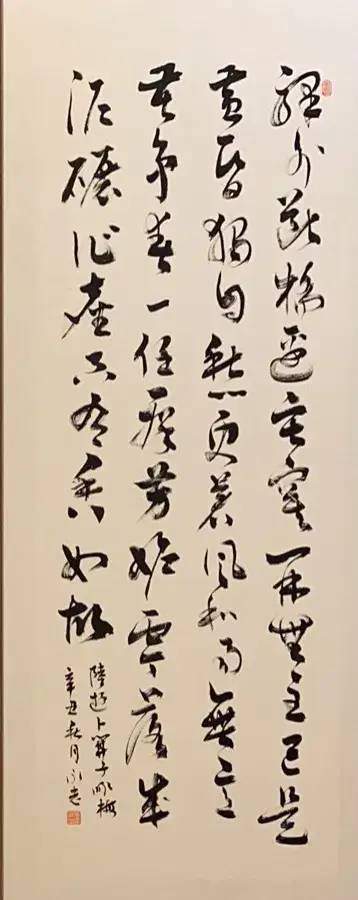 驛外斷橋邊寂寞開無主已是
黃昏獨自愁更著風和雨無意
苦爭春一任群芳妒零落成
泥碾作塵只有香如故
陸游卜算子咏梅
辛丑秋月